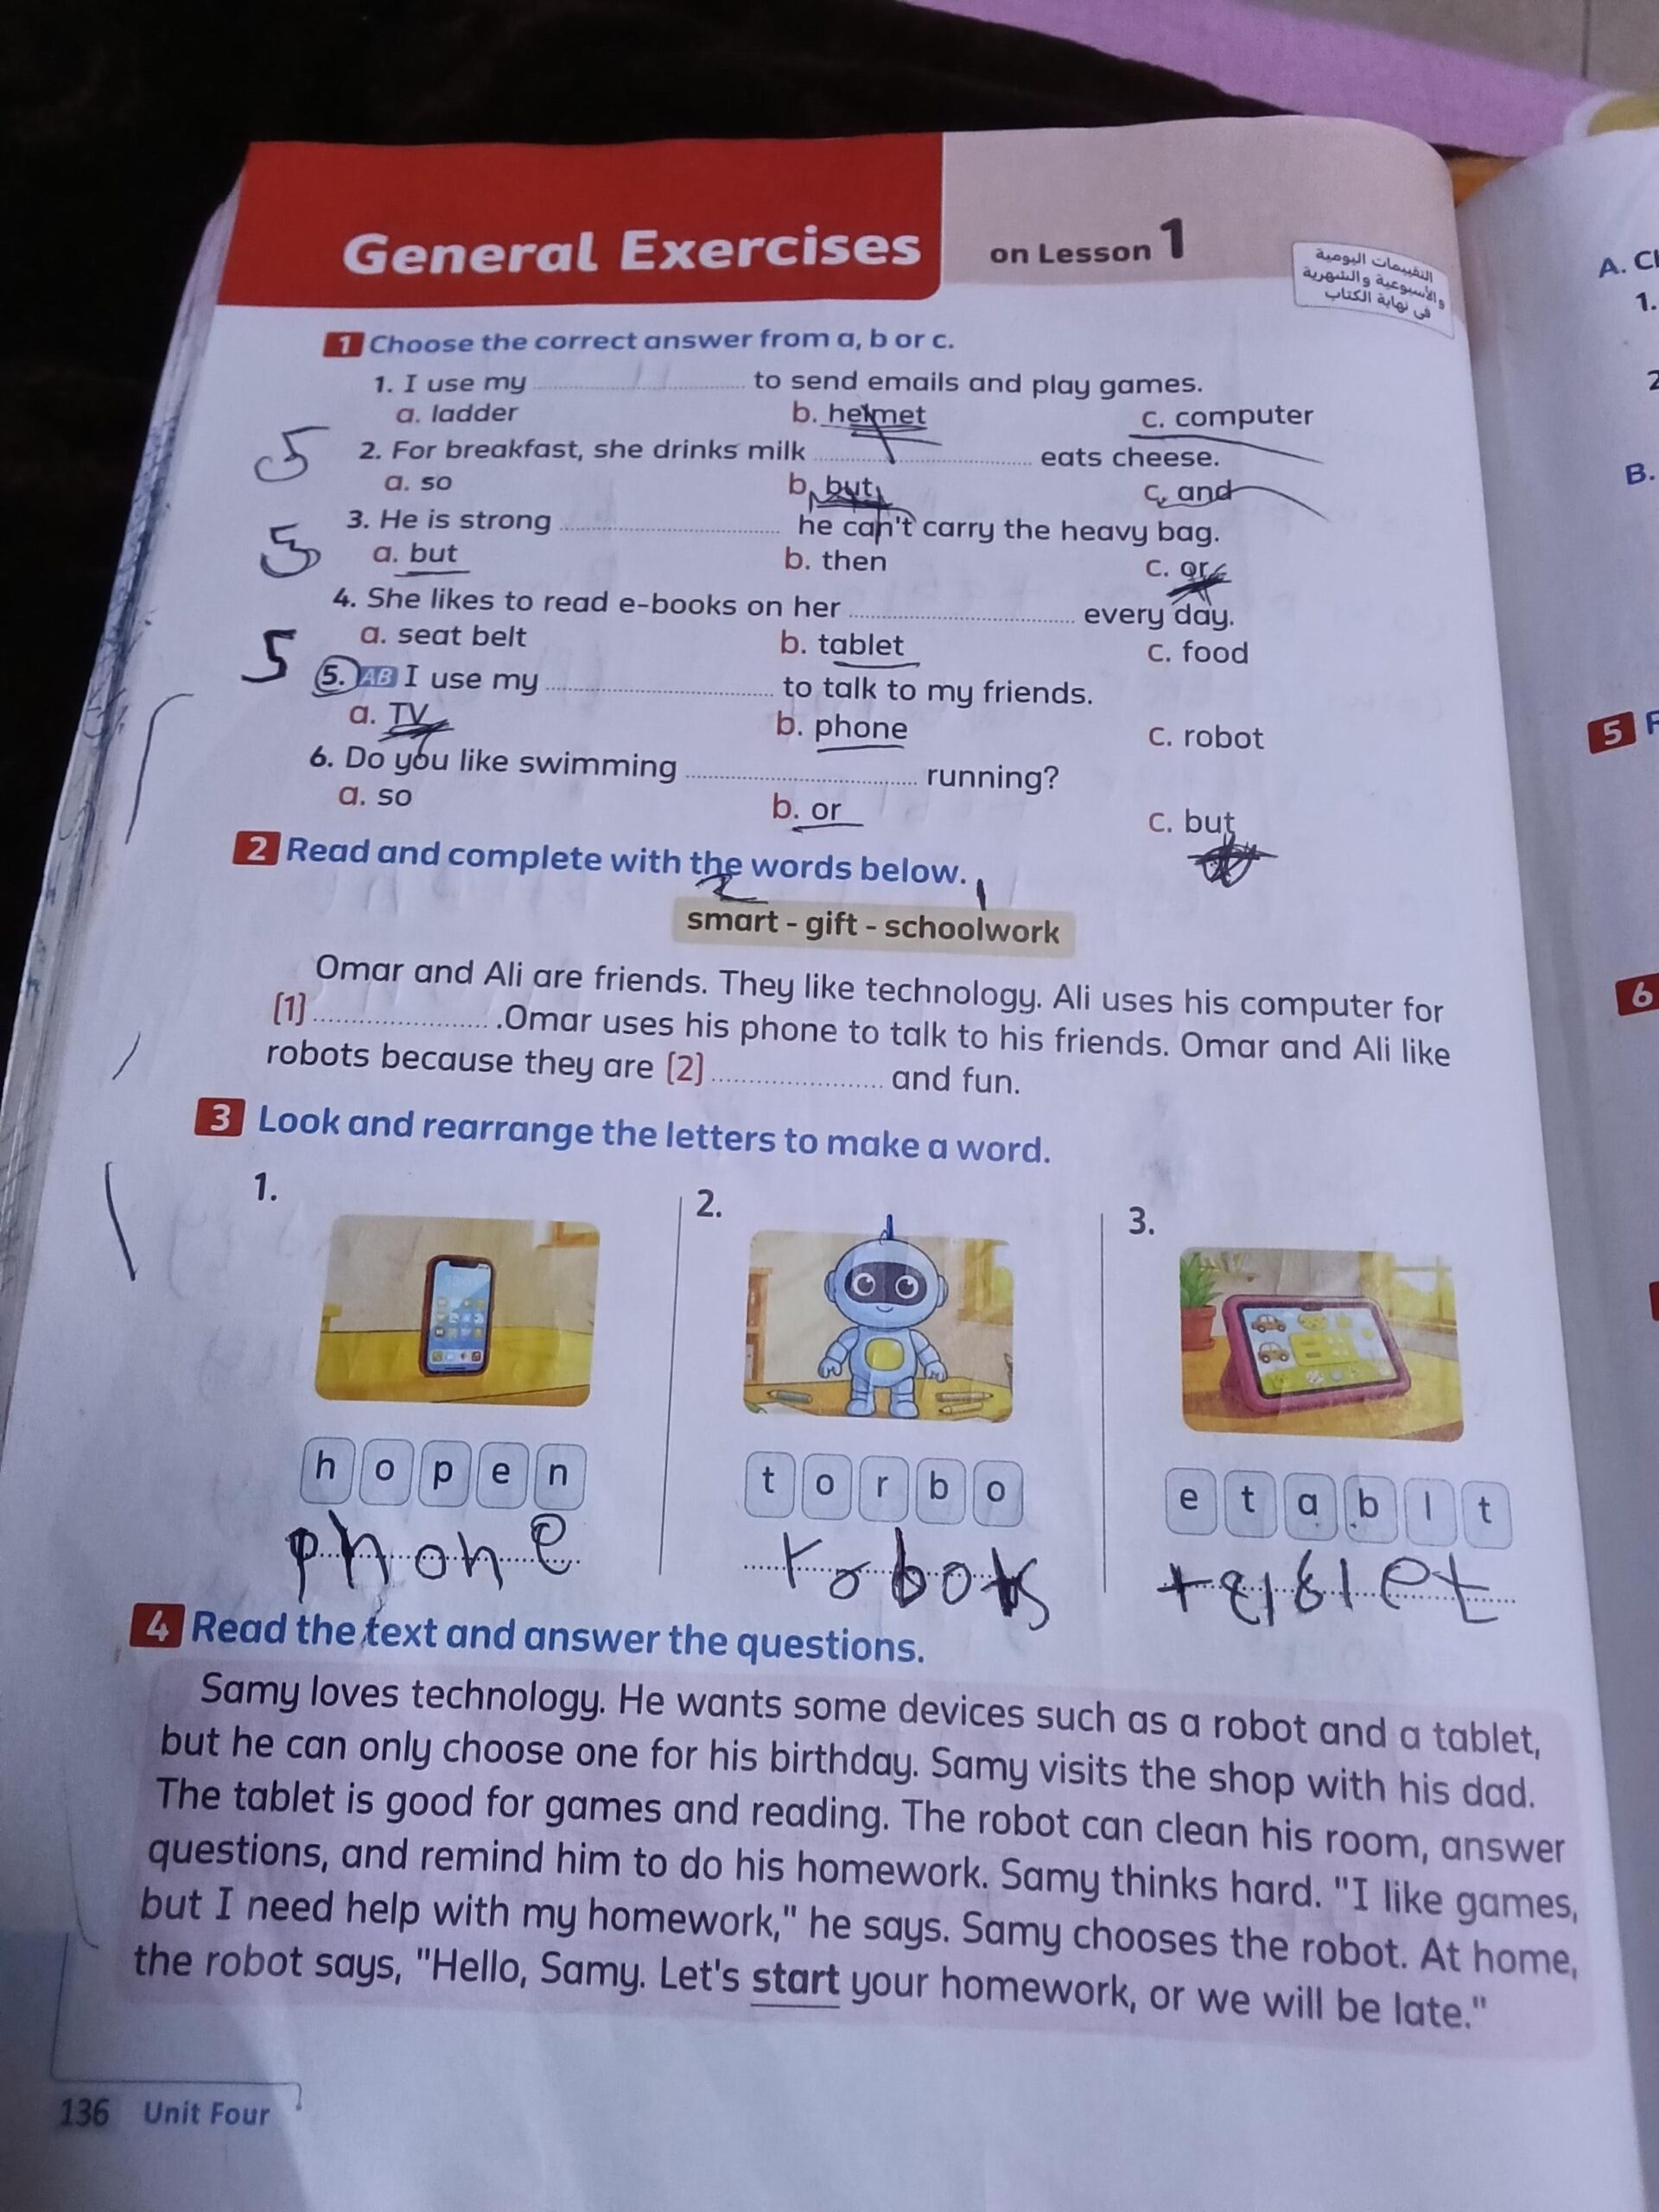 General Exercises on Lesson 1
التقييمات اليومية
والأسبوعية والشهرية
في نهاية الكتاب
1 Choose the correct answer from a, b or c.
1. I use my ........................ to send emails and play games.
a. ladder b. helmet c. computer
5
2. For breakfast, she drinks milk ........................ eats cheese.
a. so b. but c. and
3. He is strong ........................ he can't carry the heavy bag.
5
a. but b. then c. or
4. She likes to read e-books on her ........................ every day.
a. seat belt b. tablet c. food
5
5. AB I use my ........................ to talk to my friends.
a. TV b. phone c. robot
6. Do you like swimming ........................ running?
a. so b. or c. but
2 Read and complete with the words below.
2 1
smart - gift - schoolwork
Omar and Ali are friends. They like technology. Ali uses his computer for
(1) ........................ .Omar uses his phone to talk to his friends. Omar and Ali like
robots because they are (2) ........................ and fun.
3 Look and rearrange the letters to make a word.
1. 2. 3.
h o p e n t o r b o e t a b l t
phone robots
4 Read the text and answer the questions.
Samy loves technology. He wants some devices such as a robot and a tablet,
but he can only choose one for his birthday. Samy visits the shop with his dad.
The tablet is good for games and reading. The robot can clean his room, answer
questions, and remind him to do his homework. Samy thinks hard. "I like games,
but I need help with my homework," he says. Samy chooses the robot. At home,
the robot says, "Hello, Samy. Let's start your homework, or we will be late."
136 Unit Four
A.
1.
2
B.
5
6